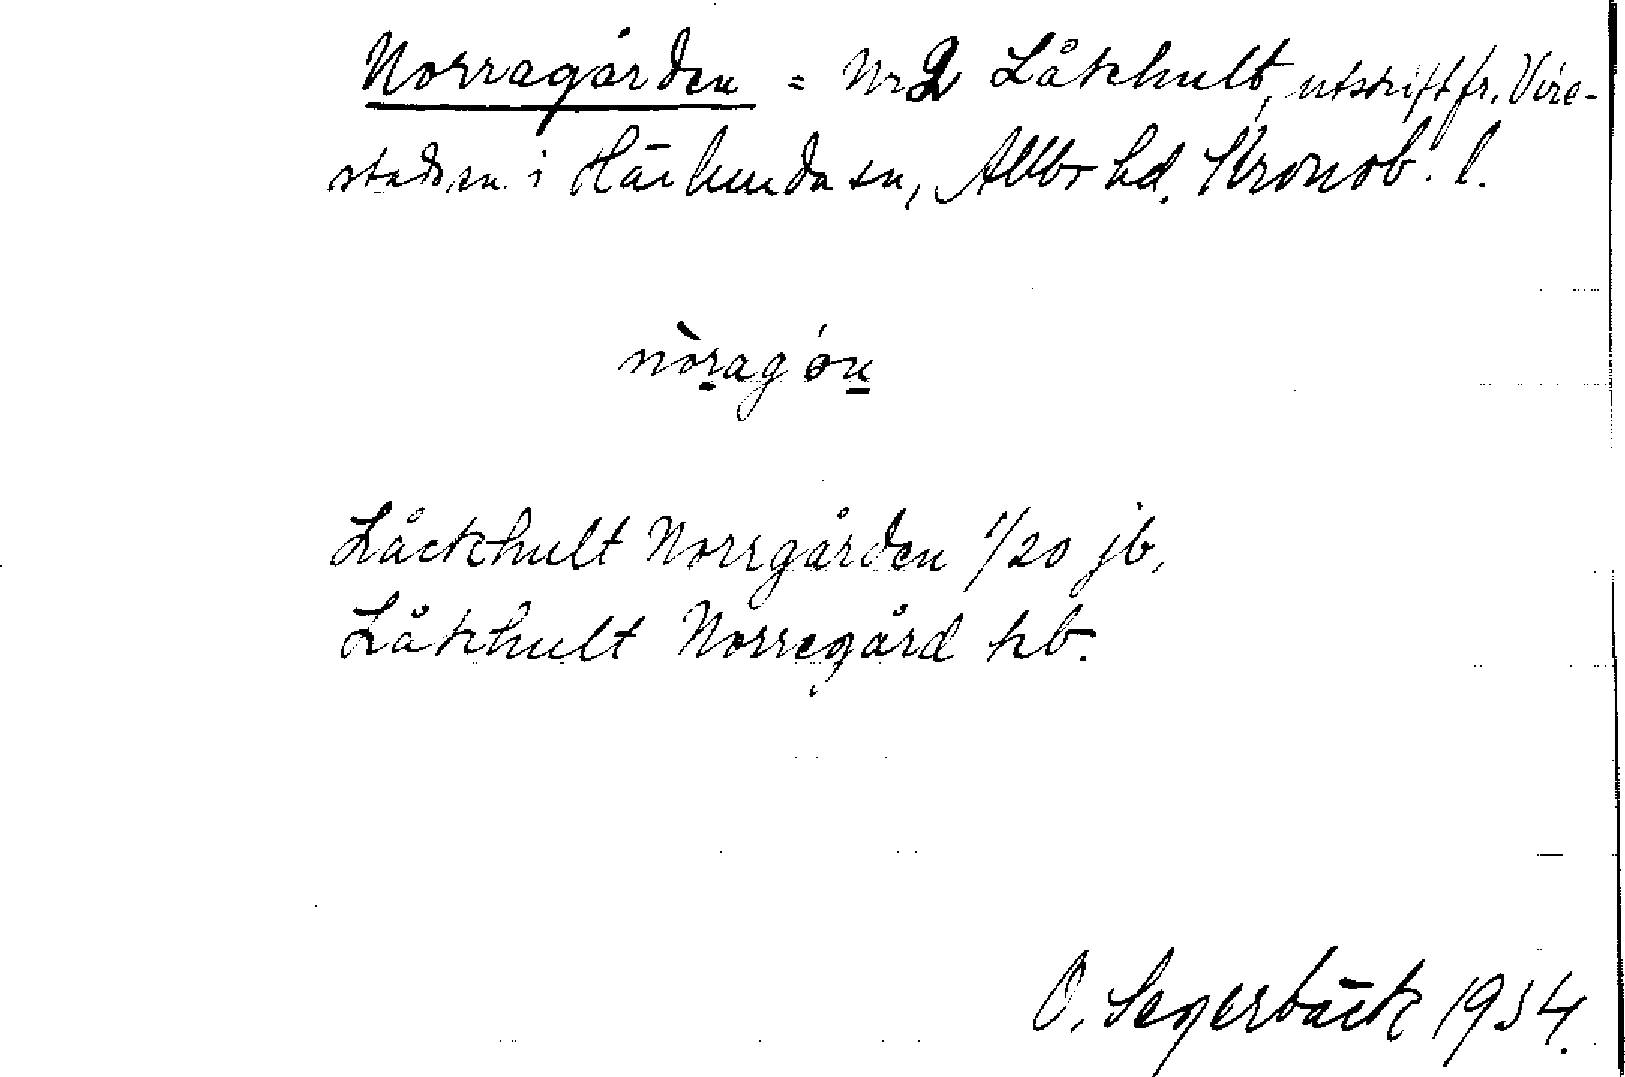 Norragården = Nr 2 Låkhult, utskift fr. Vire-
stadsn. i Härlunda sn, Allbo hd. Kronob. l.
nòragón
Låckhult Norrgården 1/20 jb,
Låkhult Norregård kb.
O. Segerbäck 1934.